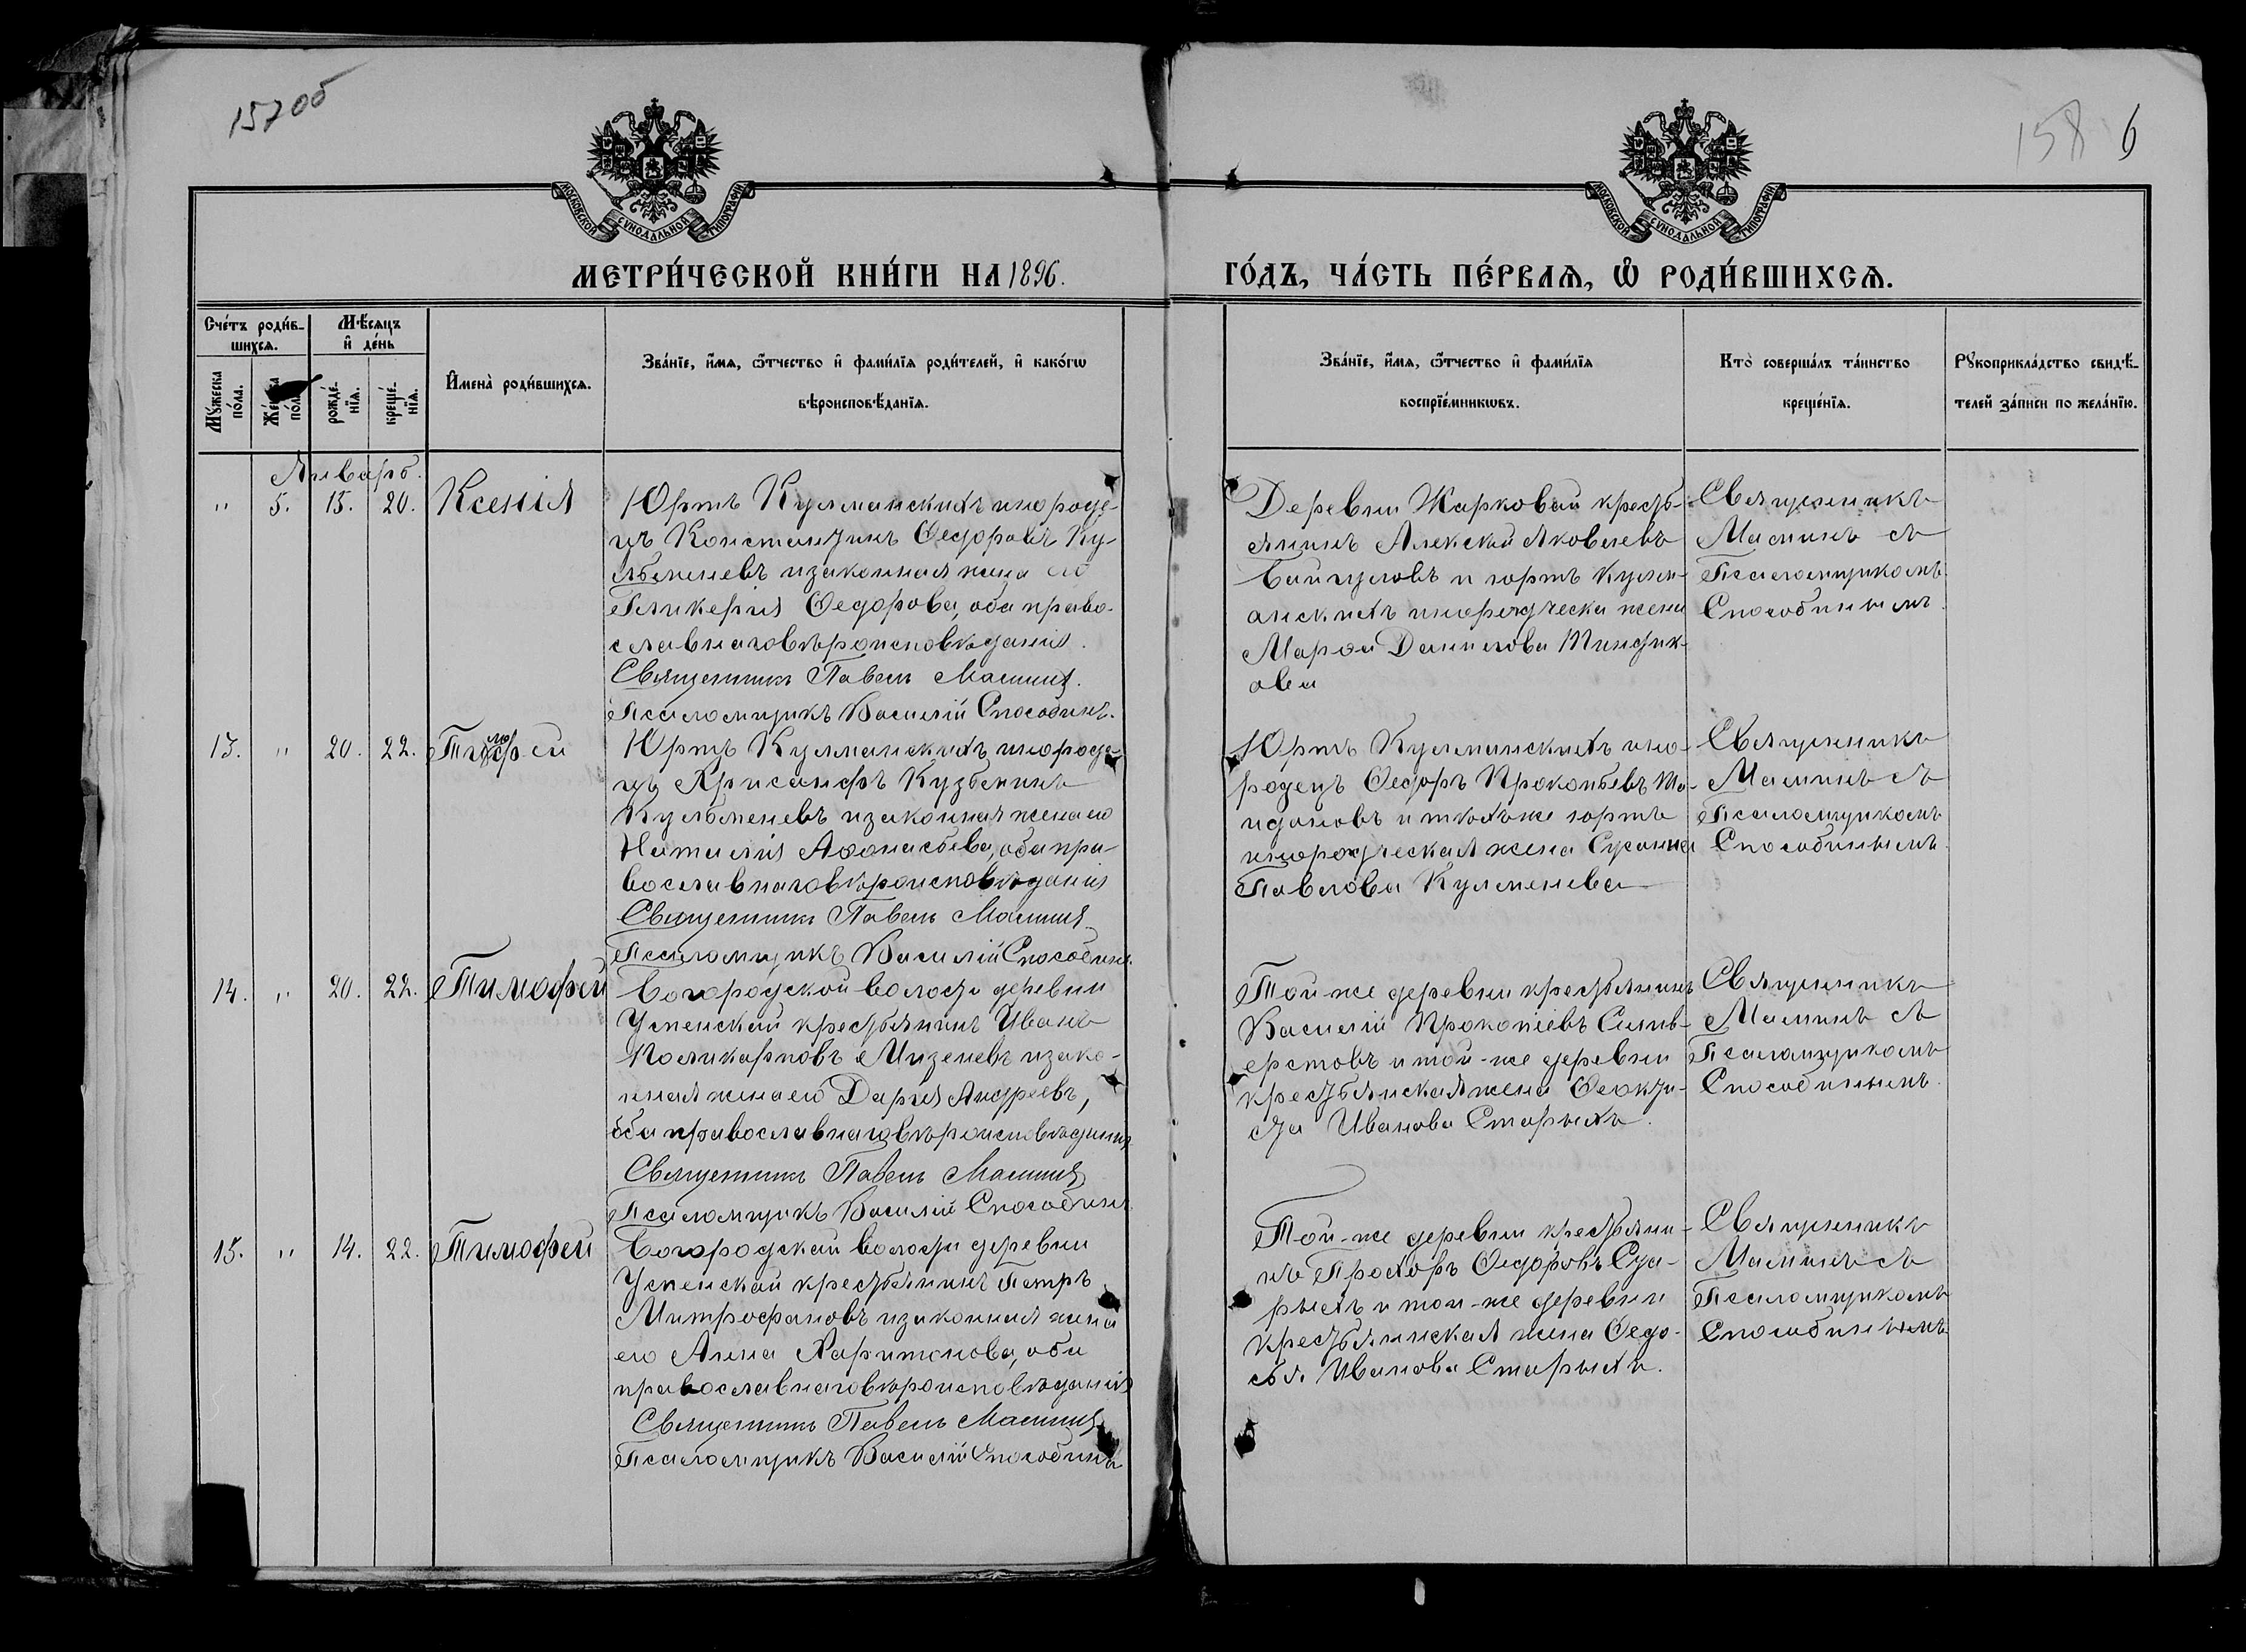 157об
158 6
МОСКОВСКОЙ СѴНОДАЛЬНОЙ ТИПОГРАФІИ
МОСКОВСКОЙ СѴНОДАЛЬНОЙ ТИПОГРАФІИ
МЕТРИ́ЧЕСКОЙ КНИ́ГИ НА 1896.
ГО́ДЪ, ЧА́СТЬ ПЕ́РВАѦ, Ѽ РОДИ́ВШИХСѦ.
Сче́тъ роди́в-
шихсѧ.
Мѣ́сѧцъ
и҆ де́нь
Мꙋ́жеска
по́ла.
Же́нска
по́ла.
рожде́-
нїѧ.
креще́-
нїѧ.
И҆мена̀ роди́вшихсѧ.
Зва́нїе, и҆́мѧ, ѻ҆́тчество и҆ фами́лїѧ роди́телей, и҆ како́гѡ
вѣроисповѣ́данїѧ.
Зва́нїе, и҆́мѧ, ѻ҆́тчество и҆ фами́лїѧ
воспрїе́мникѡвъ.
Кто̀ соверша́лъ та́инство
креще́нїѧ.
Рꙋкоприкла́дство свидѣ́-
телей за́писи по жела́нїю.
Январь.
" 5. 15. 20. Ксенія
Юртъ Кулманскихъ инороде-
цъ Константинъ Ѳедоровъ Ку-
льменевъ и законная жена его
Гликерія Ѳедорова, оба право-
славнаго вѣроисповѣданія.
Священникъ Павелъ Мамин.
Псаломщикъ Василій Способинъ.
Деревни Жарковой кресть-
янинъ Алексѣй Яковлевъ
и юртъ Кулм-
анскихъ инородческа жена
Марѳа Данилова Тиндик-
ова
Священникъ
Маминъ съ
Псаломщикомъ
Способинымъ.
13. " 20. 22. Тимофей
Юртъ Кулманскихъ инороде-
цъ Хрисанфъ Кузьминъ
Кульменевъ и законная жена его
Наталія Аѳонасьева, оба пра-
вославнаго вѣроисповѣданія
Священникъ Павелъ Мамин
Псаломщикъ Василій Способинъ.
Юртъ Кулманскихъ ино-
родецъ Ѳедоръ Прокопьевъ
и тѣхъ же юртъ
инородческая жена Сусанна
Павлова Кулменева
Священникъ
Маминъ съ
Псаломщикомъ
Способинымъ
14. " 20. 22. Тимофей
Богородской волости деревни
Успенской крестьянинъ Иванъ
Поликарповъ Мизеневъ и зако-
нная жена его Дарія Андреевъ,
оба православнаго вѣроисповѣданія
Священникъ Павелъ Мамин
Псаломщикъ Василій Способинъ
Той-же деревни крестьянинъ
Василій Прокопіевъ Силив-
ерстовъ и той-же деревни
крестьянская жена Ѳеокти-
ста Иванова Старыхъ.
Священникъ
Маминъ съ
Псаломщикомъ
Способинымъ.
15. " 14. 22. Тимофей
Богородской волости деревни
Успенской крестьянинъ Петръ
Митрофановъ и законная жена
его Анна Харитонова, оба
православнаго вѣроисповѣданія
Священникъ Павелъ Мамин
Псаломщикъ Василій Способинъ
Той-же деревни крестьяни-
нъ Прохоръ Ѳедоровъ Ста-
рыхъ и той-же деревни
крестьянская жена Ѳедо-
сья Иванова Старыхъ.
Священникъ
Маминъ съ
Псаломщикомъ
Способинымъ